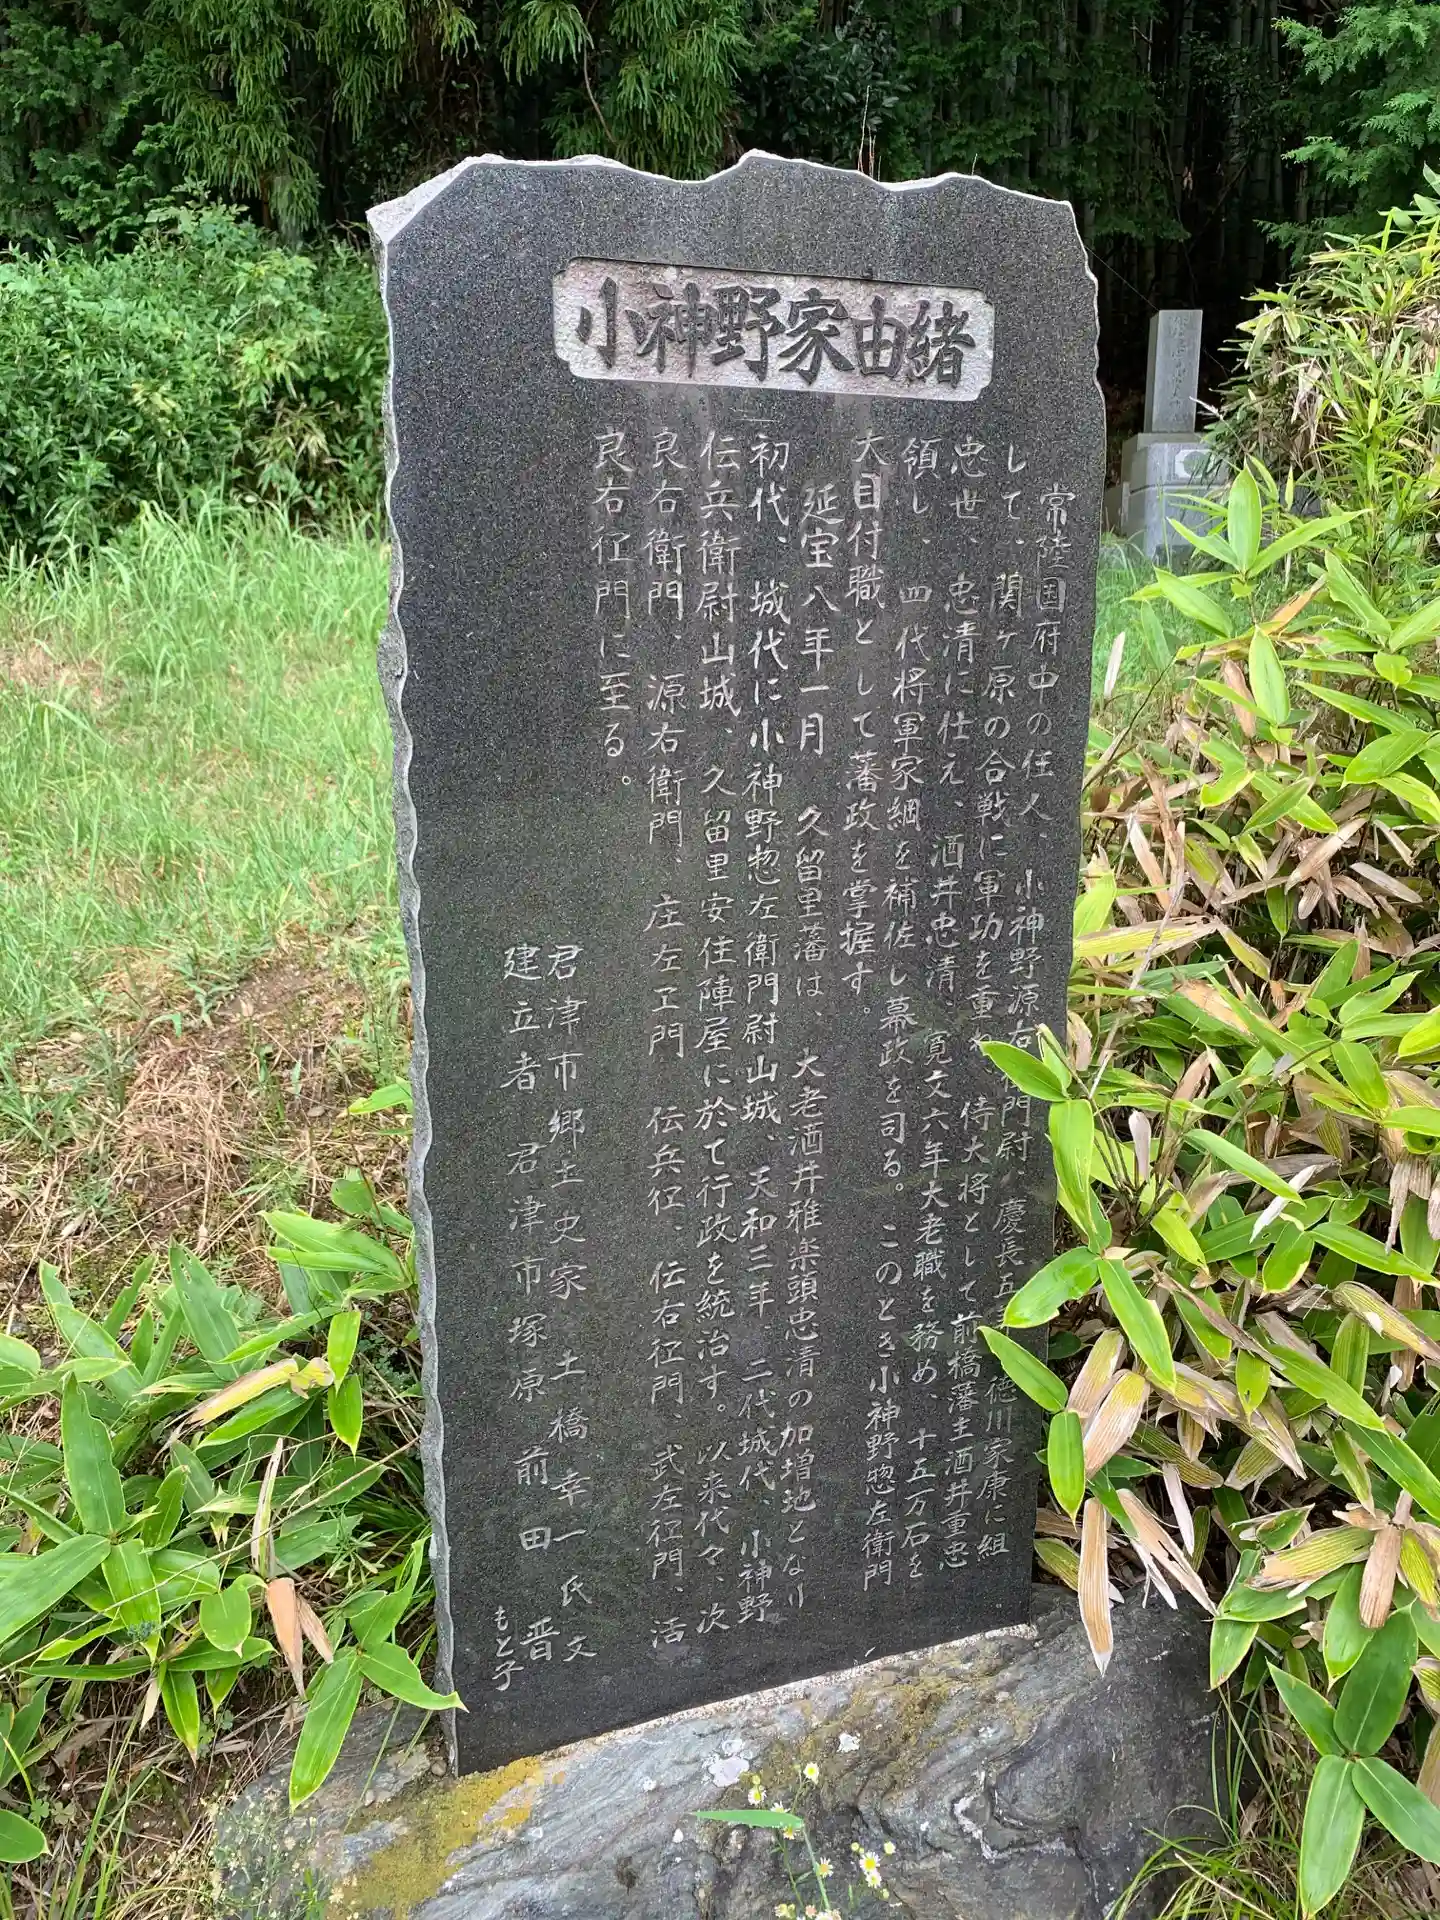 小神野家由緒
常陸国府中の住人、小神野源右衛門尉、慶長五 徳川家康に組
して、関ヶ原の合戦に軍功を重ね 侍大将として前橋藩主酒井重忠
忠世、忠清に仕え、酒井忠清、寛文六年大老職を務め、十五万石を
領し、四代将軍家綱を補佐し幕政を司る。このとき小神野惣左衛門
大目付職として藩政を掌握す。
延宝八年一月 久留里藩は、大老酒井雅楽頭忠清の加増地となり
初代、城代に小神野惣左衛門尉山城、天和三年 二代城代、小神野
伝兵衛尉山城、久留里安住陣屋に於て行政を統治す。以来代々、次
良右衛門、源右衛門、庄左エ門 伝兵ヱ、伝右ヱ門、武左ヱ門、活
良右ヱ門に至る。
君津市郷土史家 土橋幸一氏文
建立者 君津市塚原 前田 晋
もと子